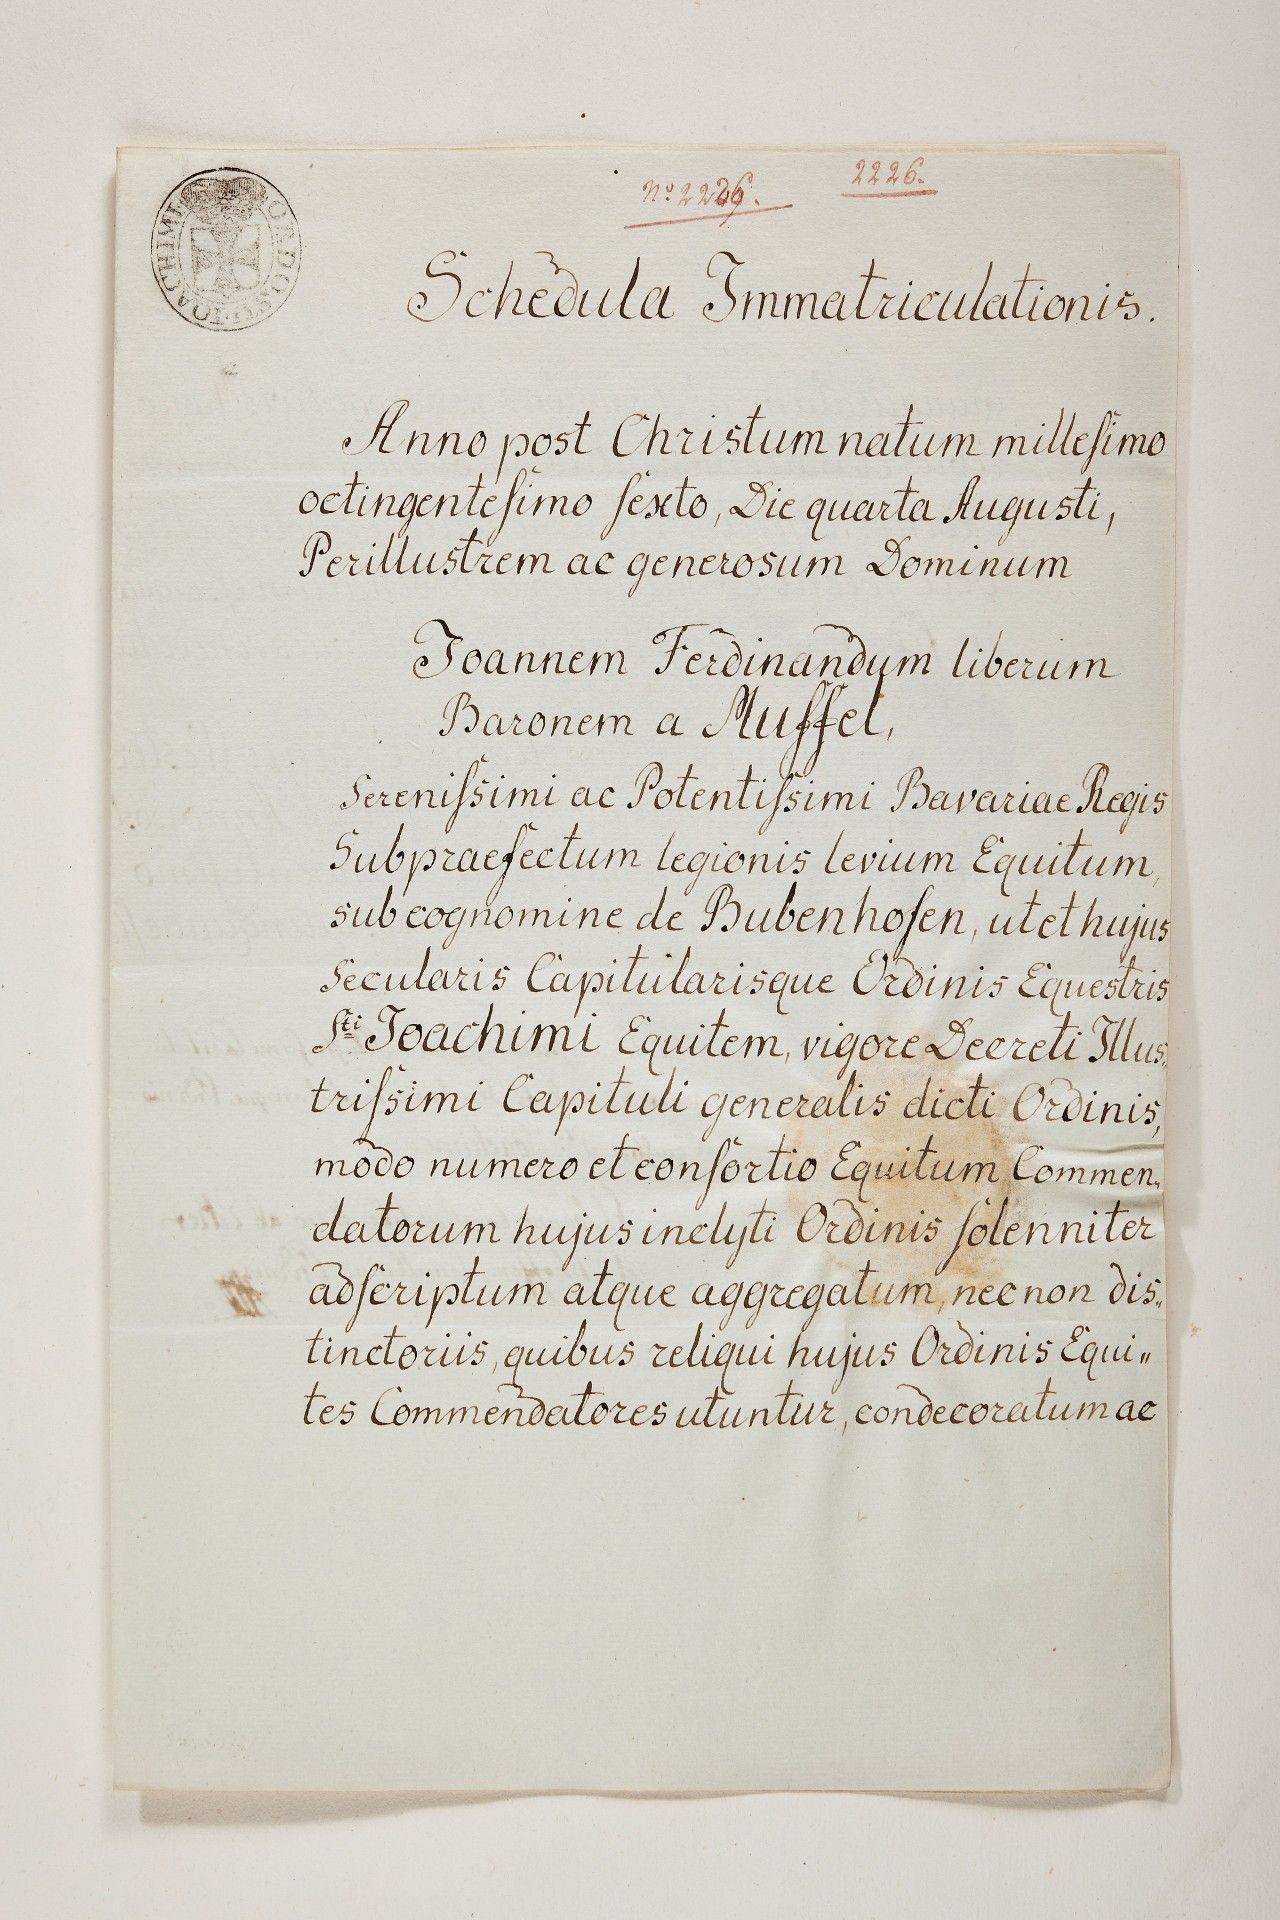 ORDO STI JOACHIMI
No 2226.
2226.
Schedula Immatriculationis.
Anno post Christum natum milleſimo
octingenteſimo ſexto, Die quarta Augusti,
Perillustrem ac generosum Dominum
Joannem Ferdinandum liberum
Baronem a Muffel,
Sereniſsimi ac Potentiſsimi Bavariae Regis
Subpraefectum legionis levium Equitum,
sub cognomine de Bubenhofen, ut et hujus
Secularis Capitularisque Ordinis Equestris
Sti Joachimi Equitem, vigore Decreti Illus„
triſsimi Capituli generalis dicti Ordinis,
modo numero et conſortio Equitum Commen„
datorum hujus inclyti Ordinis ſolenniter
adſcriptum atque aggregatum, nec non dis„
tinctoriis, quibus reliqui hujus Ordinis Equi„
tes Commendatores utuntur, condecoratum ac